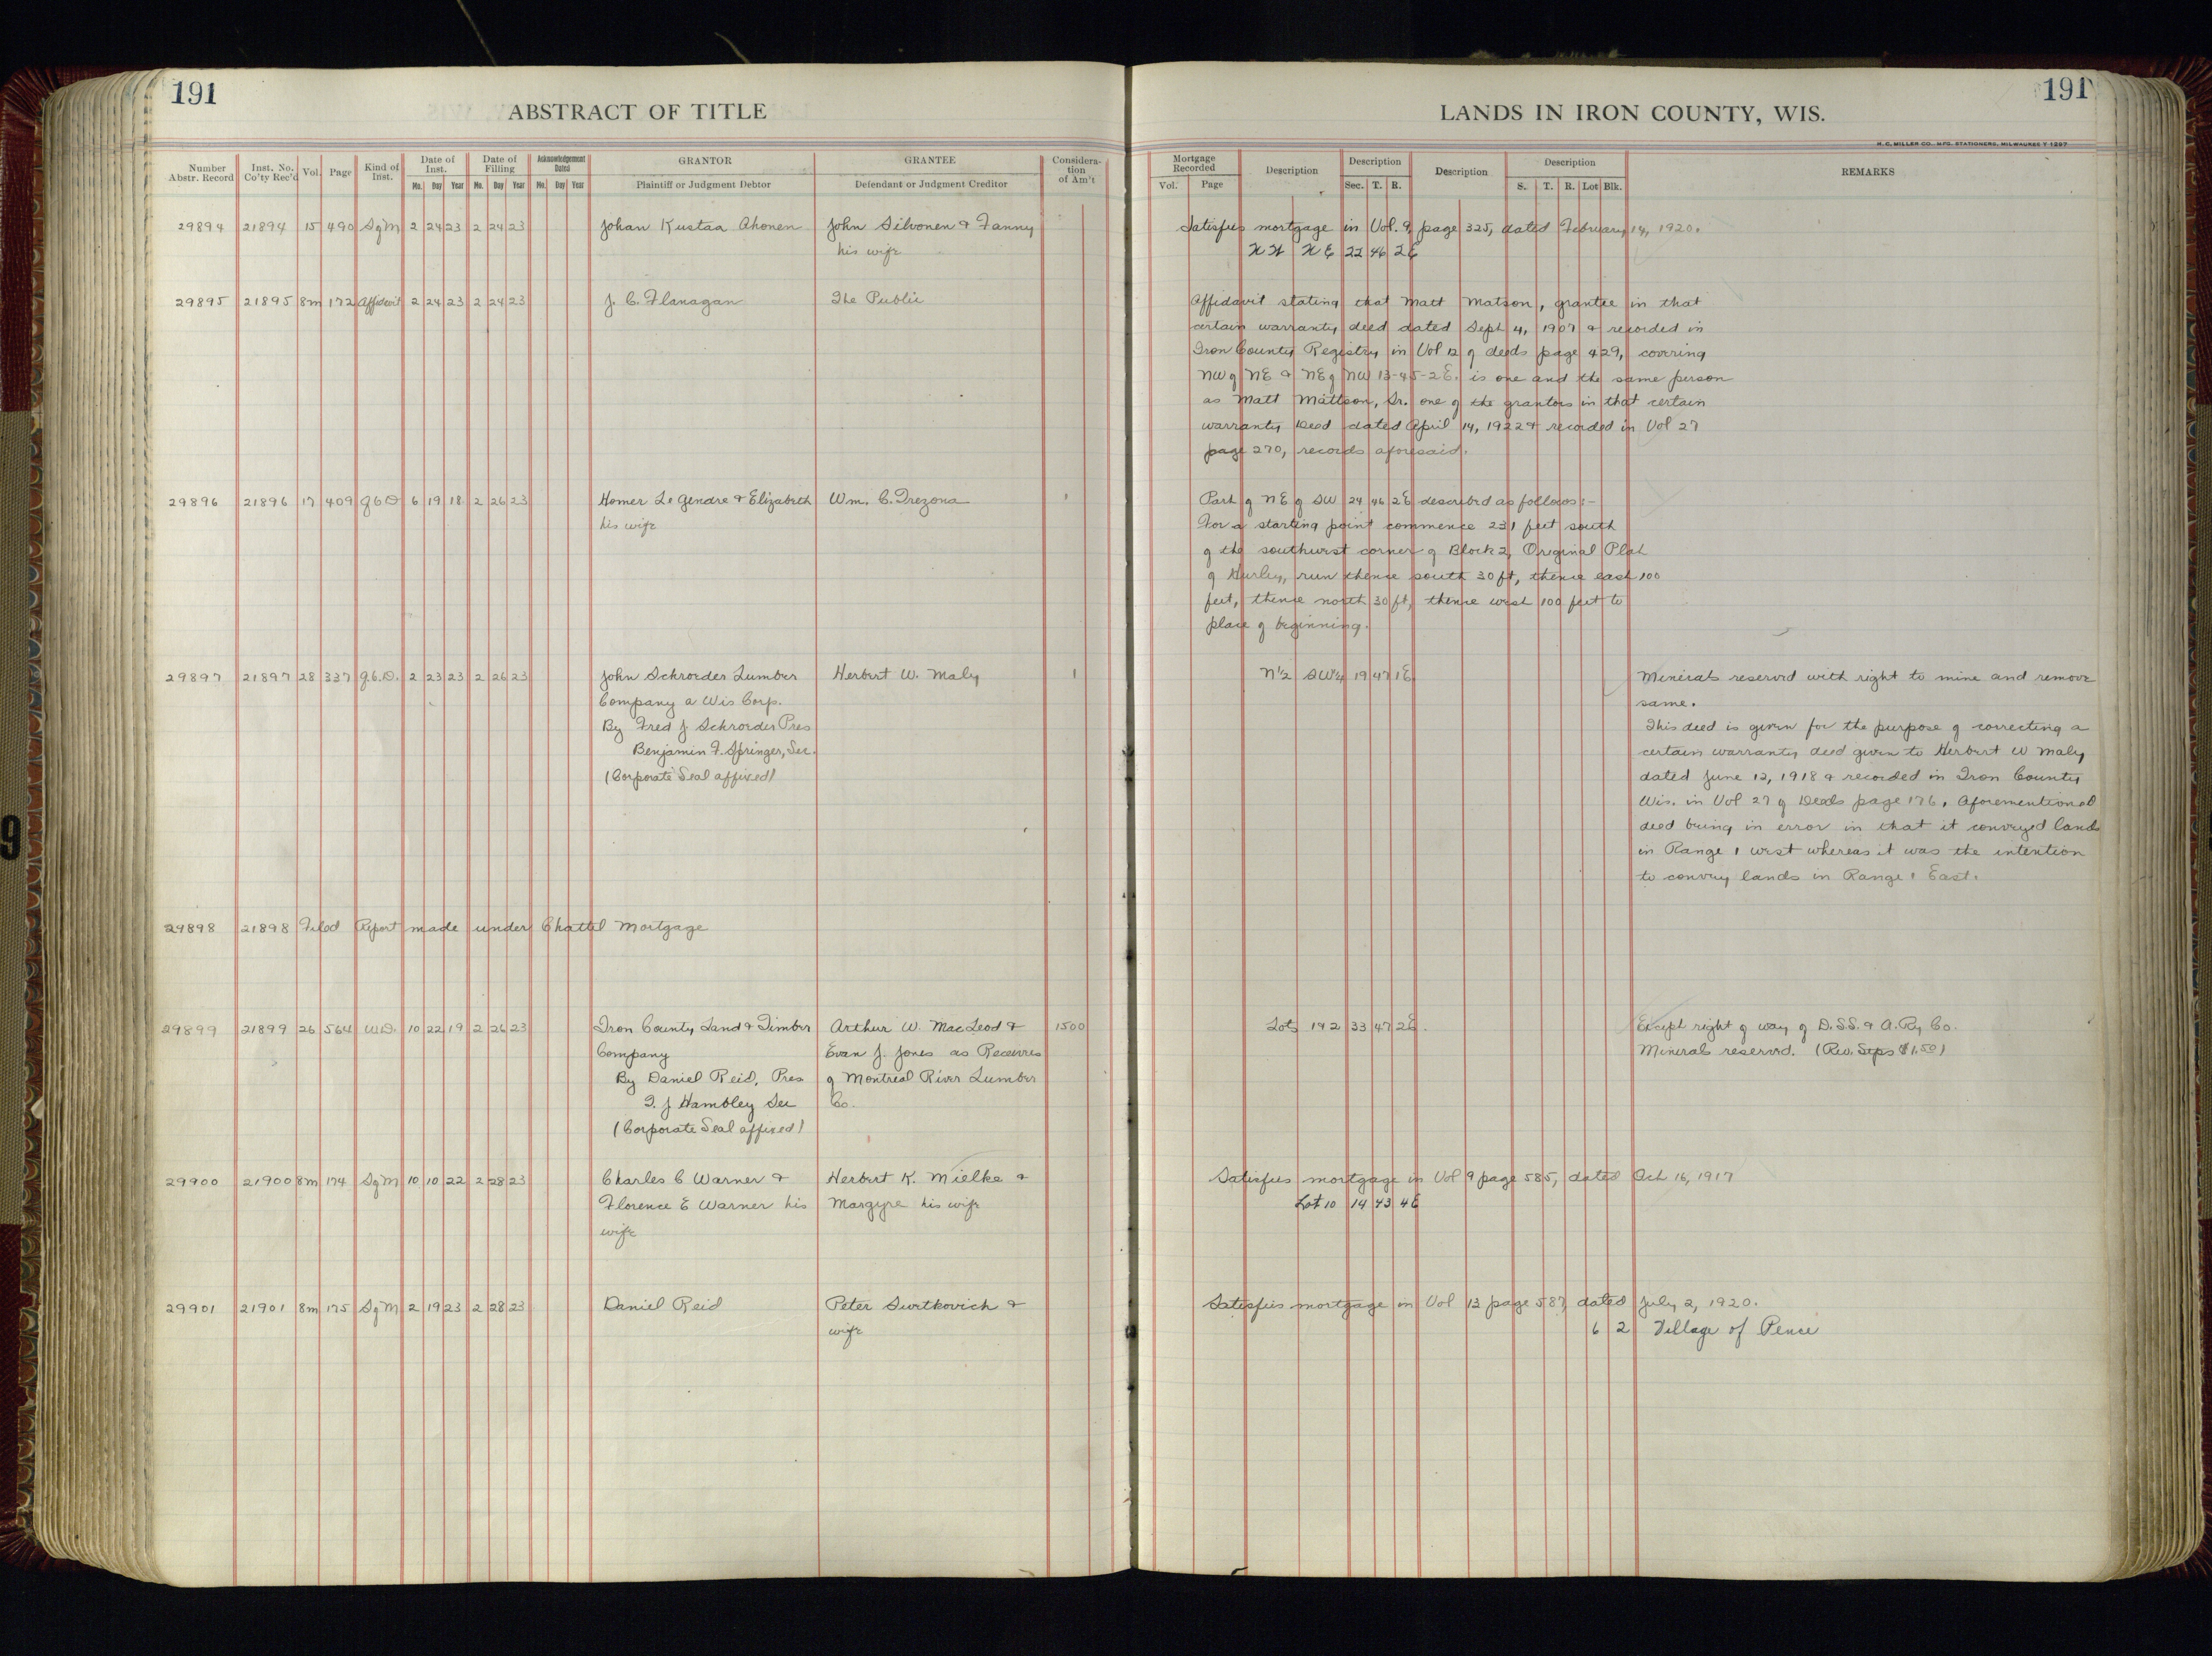 191
ABSTRACT OF TITLE
Number Abstr. Record
Inst. No. Co'ty Rec'd
Vol.
Page
Kind of Inst.
Date of Inst.
Mo. Day Year
Date of Filling
Mo. Day Year
Acknowledgement Dated
Mo. Day Year
GRANTOR
Plaintiff or Judgment Debtor
GRANTEE
Defendant or Judgment Creditor
Considera-tion of Am't
29894 21894 15 490 SgM 2 24 23 2 24 23 Johan Kustaa Ahonen John Silvonen & Fanny
his wife
29895 21895 8m 172 Affidavit 2 24 23 2 24 23 J. C. Flanagan The Public
29896 21896 17 409 Q C D 6 19 18 2 26 23 Homer Le Gendre & Elizabeth Wm. C. Trezona 1
his wife
29897 21897 28 337 Q.C.D. 2 23 23 2 26 23 John Schroeder Lumber Herbert W. Maly 1
Company a Wis Corp.
By Fred J Schroeder Pres
Benjamin F. Springer, Sec.
(Corporate Seal affixed)
29898 21898 Filed Report made under Chattel Mortgage
29899 21899 26 564 W.D. 10 22 19 2 26 23 Iron County Land & Timber Arthur W. MacLeod & 1500
Company Evan J. Jones as Receivers
By Daniel Reid, Pres of Montreal River Lumber
T. J Hambley Sec Co.
(Corporate Seal affixed)
29900 21900 8m 174 SgM 10 10 22 2 28 23 Charles C Warner & Herbert K. Mielke &
Florence E Warner his Margyre his wife
wife
29901 21901 8m 175 SgM 2 19 23 2 28 23 Daniel Reid Peter Surtkovich &
wife
191
LANDS IN IRON COUNTY, WIS.
H. C. MILLER CO., MFG. STATIONERS, MILWAUKEE Y 1297
Mortgage Recorded
Vol. Page
Description
Description
Sec. T. R.
Description
Description
S. T. R. Lot Blk.
REMARKS
Satisfies mortgage in Vol. 9, page 325, dated February 14, 1920.
NW NE 22 46 2E
Affidavit stating that Matt Matson, grantee in that
certain warranty deed dated Sept 4, 1907 & recorded in
Iron County Registry in Vol 12 of deeds page 429, covering
NW of NE & NE of NW 13-45-2E. is one and the same person
as Matt Mattson, Sr. one of the grantors in that certain
warranty Deed dated April 14, 1922 & recorded in Vol 27
page 270, records aforesaid.
Part of NE of SW 24 46 2E described as follows:-
For a starting point commence 231 feet south
of the southwest corner of Block 2, Original Plat
of Hurley, run thence south 30 ft, thence east 100
feet, thence north 30 ft, thence west 100 feet to
place of beginning.
N½ SW¼ 19 47 1E Minerals reserved with right to mine and remove
same.
This deed is given for the purpose of correcting a
certain warranty deed given to Herbert W Maly
dated June 12, 1918 & recorded in Iron County
Wis. in Vol 27 of Deeds page 176. Aforementioned
deed being in error in that it conveyed lands
in Range 1 west whereas it was the intention
to convey lands in Range 1 East.
Lots 1 & 2 33 47 2E. Except right of way of D.S.S. & A. Ry Co.
Minerals reserved. (Rev. Stps $1.50)
Satisfies mortgage in Vol 9 page 585, dated Oct 16, 1917
Lot 10 14 43 4E
Satisfies mortgage in Vol 12 page 587, dated July 2, 1920.
6 2 Village of Pence